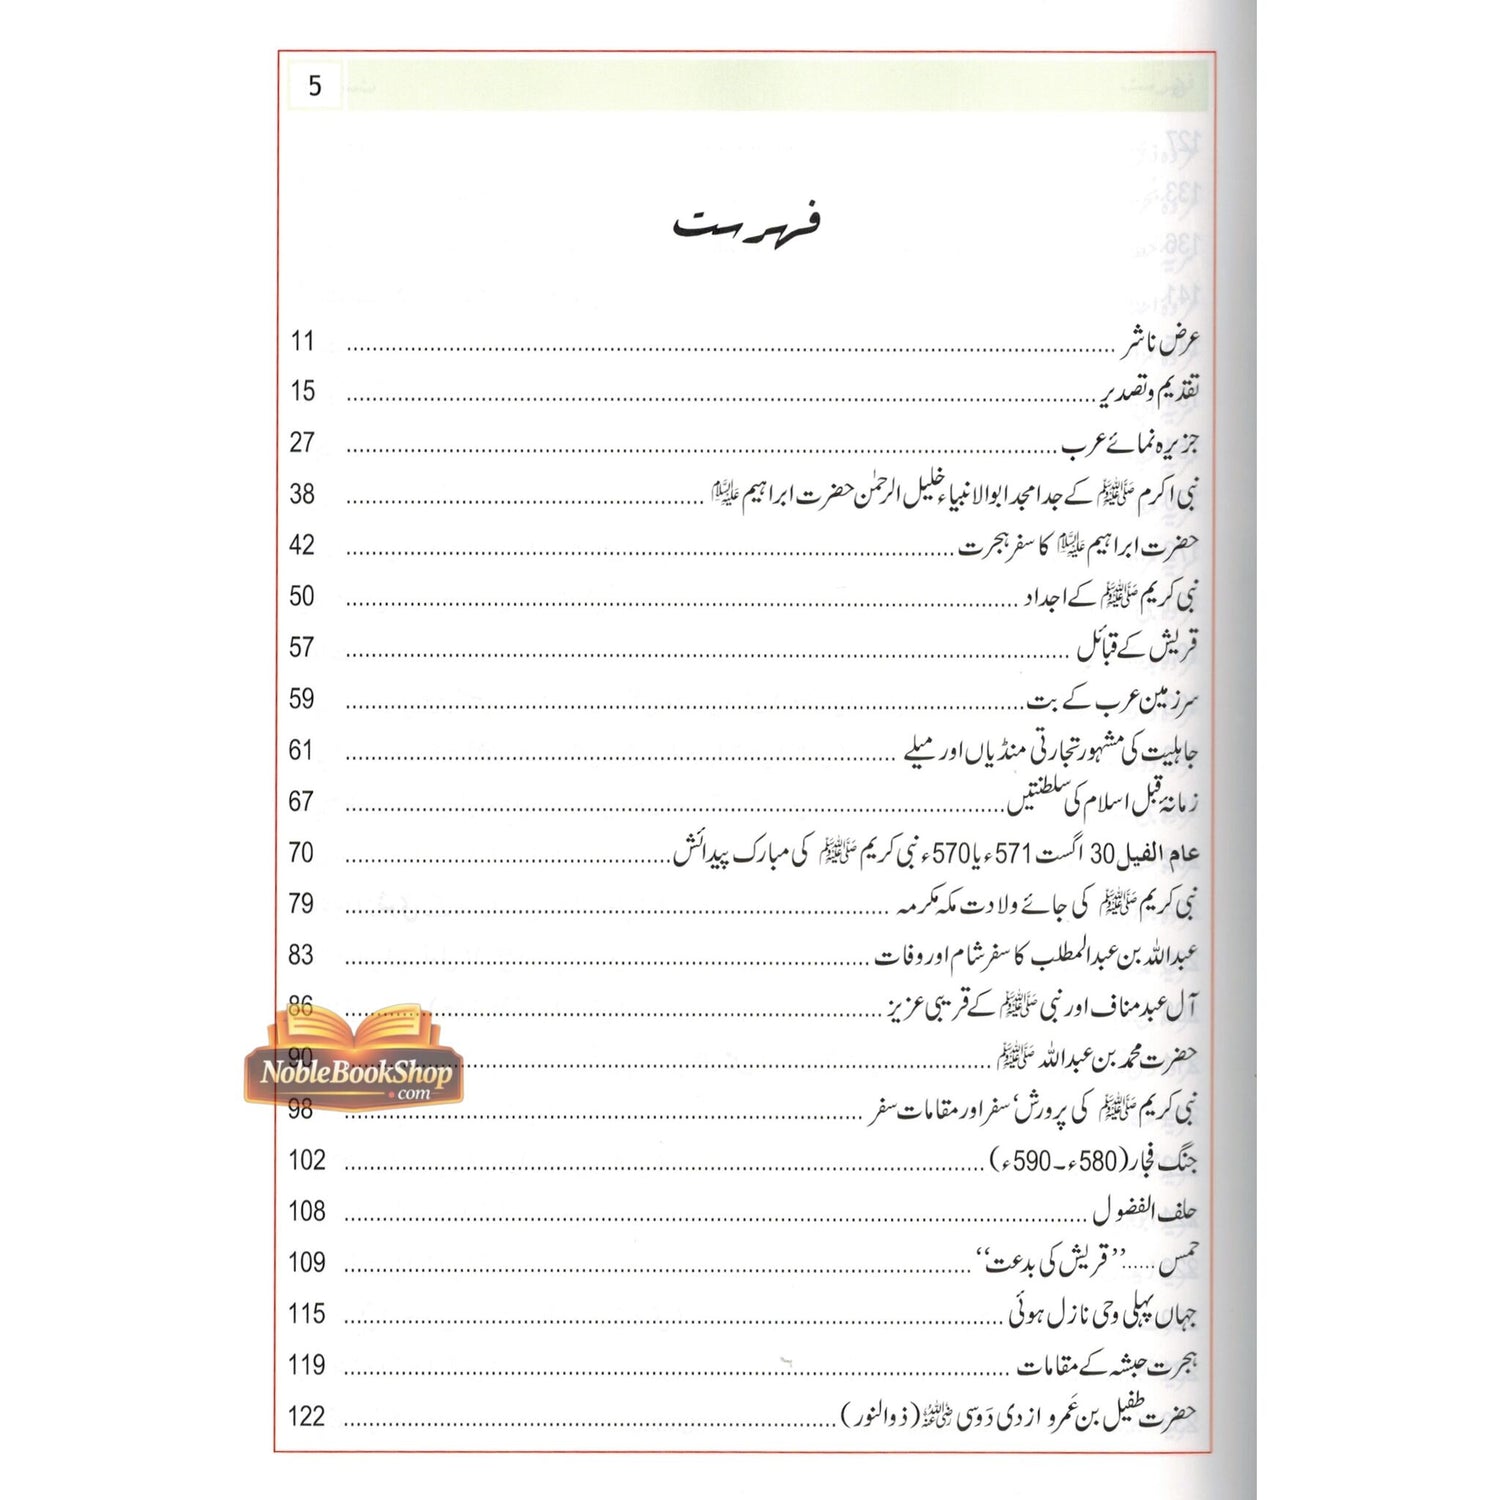 5
فہرست
عرض ناشر ........ 11
تقدیم و تصدیر ........ 15
جزیرہ نمائے عرب ........ 27
نبی اکرم ﷺ کے جد امجد ابوالانبیاء خلیل الرحمٰن حضرت ابراہیم علیہ السلام ........ 38
حضرت ابراہیم علیہ السلام کا سفر ہجرت ........ 42
نبی کریم ﷺ کے اجداد ........ 50
قریش کے قبائل ........ 57
سرزمین عرب کے بت ........ 59
جاہلیت کی مشہور تجارتی منڈیاں اور میلے ........ 61
زمانۂ قبل اسلام کی سلطنتیں ........ 67
عام الفیل 30 اگست 571ء یا 570ء نبی کریم ﷺ کی مبارک پیدائش ........ 70
نبی کریم ﷺ کی جائے ولادت مکہ مکرمہ ........ 79
عبداللہ بن عبدالمطلب کا سفر شام اور وفات ........ 83
آل عبد مناف اور نبی ﷺ کے قریبی عزیز ........ 86
حضرت محمد بن عبداللہ ﷺ ........ 90
نبی کریم ﷺ کی پرورش، سفر اور مقامات سفر ........ 98
جنگ فجار (580ء۔590ء) ........ 102
حلف الفضول ........ 108
حمس ......’’قریش کی بدعت‘‘ ........ 109
جہاں پہلی وحی نازل ہوئی ........ 115
ہجرت حبشہ کے مقامات ........ 119
حضرت طفیل بن عَمرو ازدی دَوسی رضی اللہ عنہ (ذوالنور) ........ 122
NobleBookShop
.com